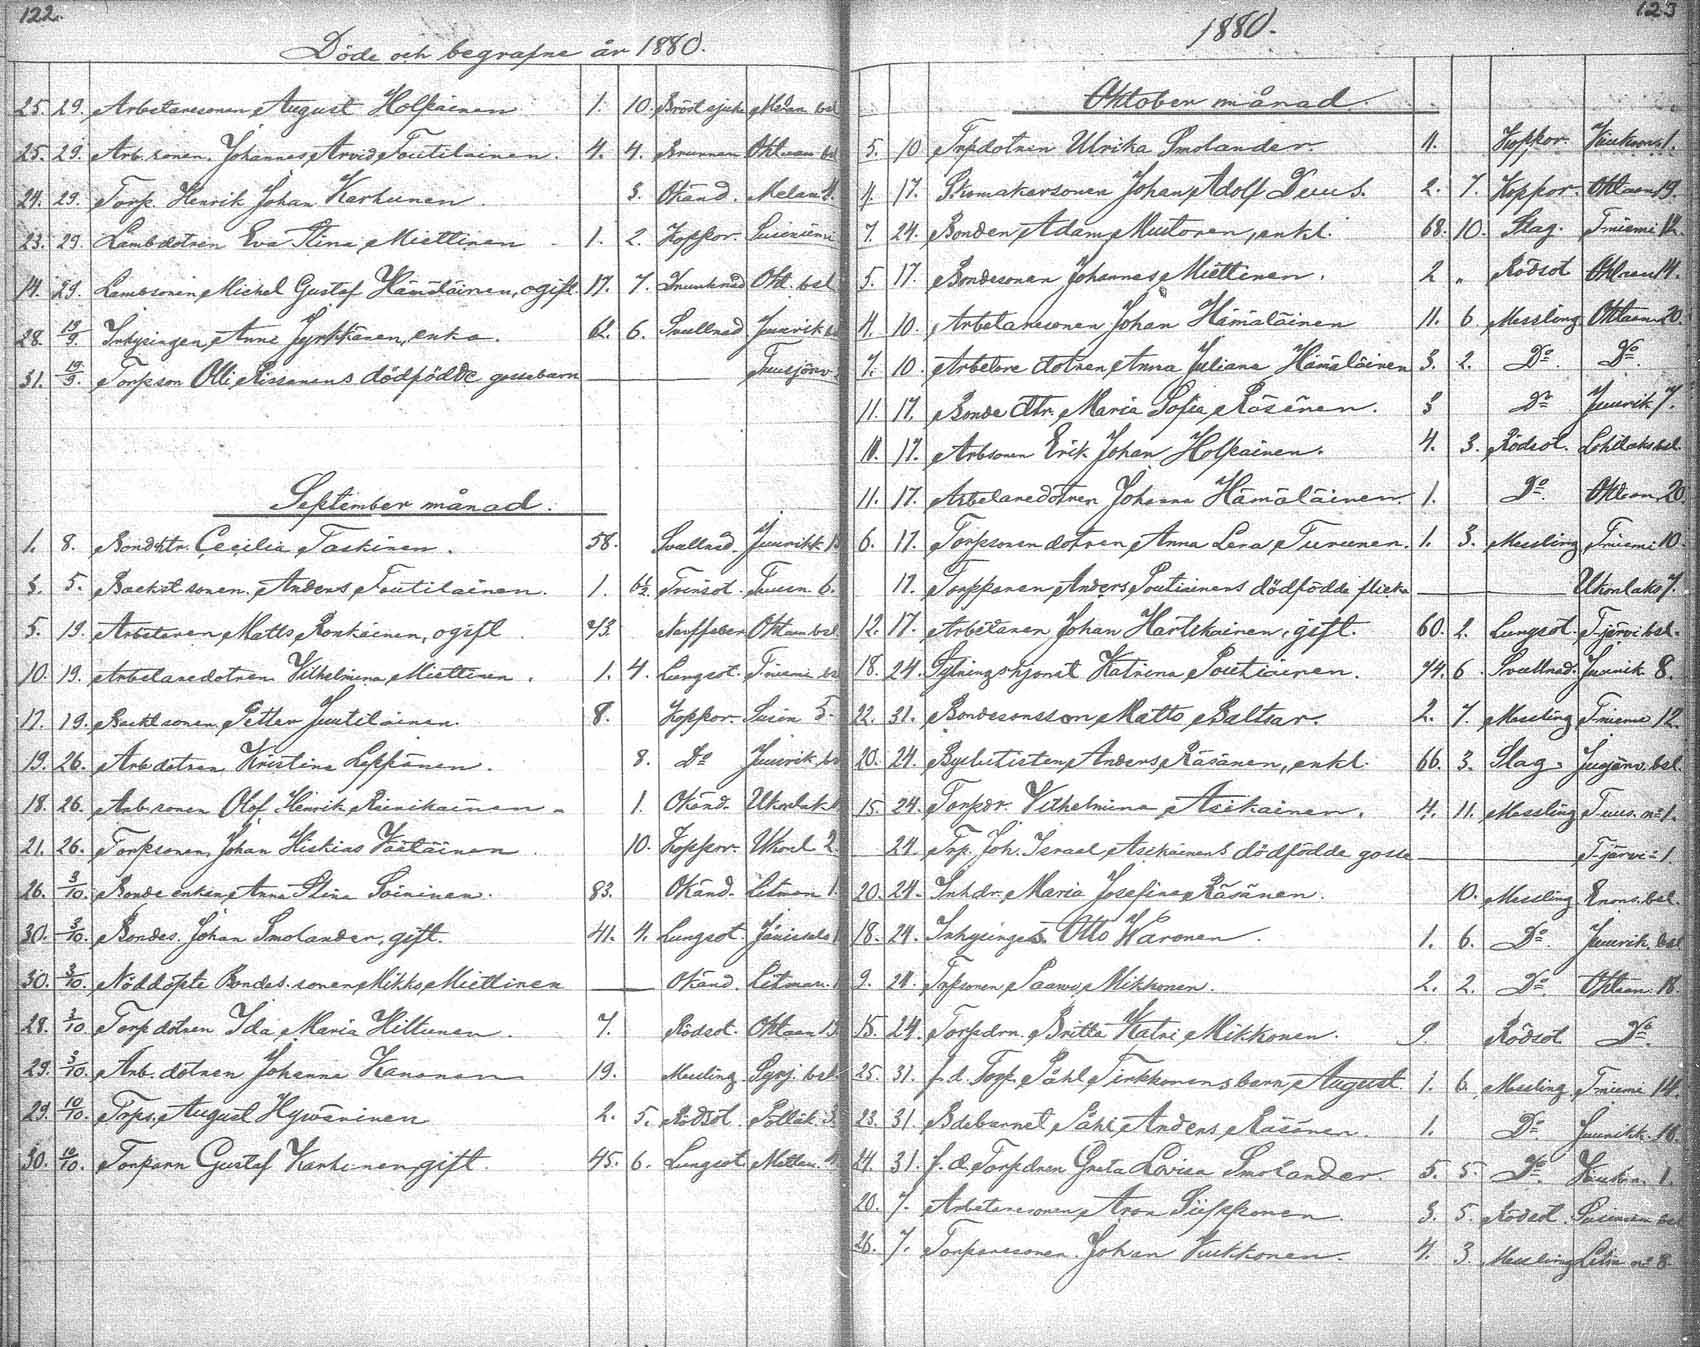 122.
Döde och begrafne år 1880.
25. 29. Arbetaresonen August Holpainen 1. 10. Bröstsjuk
25. 29. Arb. sonen. Johannes Arvid Toutilainen. 4. 4. Okluan
24. 29. Torp. Henrik Johan Karhunen. 3. Okänd. Melan
23. 29. Lambdotren Eva Stina Miettinen 1. 2. Koppor.
14. 29. Lambsonen Michel Gustaf Hämäläinen, ogift. 17. 7. bsl.
28. 19/9. Inhysingen Anna Jyrkkänen, enka. 62. 6. Svullnad Juurik
31. 19/9. Torpson Olli Rissanens dödfödde gossebarn — Tuusjärv
September månad.
1. 8. Bondhtr. Cecilia Taskinen. 58. Svullnad. Juurikk
3. 5. Backst sonen. Anders Toutilainen. 1. Tvinsot. Tuusn. 6.
5. 19. Arbetaren Matts Ronkainen, ogift 43. Nerffeber bsl.
10. 19. Arbetaredotren Vilhelmina Miettinen. 1. 4. Lungsot. T niemi
17. 19. Backst sonen Petter Juutilainen. 8. Koppor. 5.
19. 26. Arb dotren Kristina Leppänen. 8. Do Juurik
18. 26. Arb. sonen Olof Henrik Reinikainen 1. Okänd. Ukonlak
21. 26. Torpsonen Johan Hiskias Väätäinen. 10. Koppor. Ukonl 2.
26. 3/10. Bonde enkan Anna Stina Soininen. 83. Okänd. Litman 1.
30. 3/10. Bondes. Johan Smolander, gift. 41. 4. Lungsot.
30. 3/10. Nöddöpte Bondes. sonen Mikko Miettinen — Okänd. Litman.
28. 3/10 Torp dotren Ida Maria Hiltunen. 7. Rödsot.
29. 3/10. Arb. dotren Johanna Kananen 19. Messling
29. 10/10. Trps. August Hyvärinen 2. 5. Rödsot.
30. 10/10. Torparn Gustaf Karhunen, gift. 45. 6. Lungsot
123
1880.
Oktober månad.
5. 10 Trpdotren Ulrika Smolander. Koppor. 1.
4. 17. Skomakarsonen Johan Adolf Duus. 2. 7. Koppor. 19.
7. 24. Bonden Adam Mustonen, enkl. 68. 10. Slag. T niemi
5. 17. Bondesonen Johannes Miettinen. 2 „ Rödsot 14.
4. 10. Arbetaresonen Johan Hämäläinen 11. 6 Messling 20.
7. 10. Arbetare dotren Anna Juliana Hämäläinen 3. 2. Do. Do
11. 17. Bonde dtr. Maria Sofia Räsänen. 3 Do Juurik 7.
11. 17. Arbsonen Erik Johan Holpainen. 4. 3. Rödsot. bsl.
11. 17. Arbetaredotren Johanna Hämäläinen 1. Do. 20.
6. 17. Torpsonen dotren Anna Lena Turunen. 1. 3. Messling T niemi 10.
17. Torpparen Anders Poutiainens dödfödda flicka — Ukonlaks 7.
12. 17. Arbetaren Johan Hartikainen, gift. 60. 2. Lungsot. T-järvi bsl.
18. 24. Sytningshjonet Katrina Poutiainen. 74. 6. Svullnad. Juurik 8.
22. 31. Bondesonsson Matts Baltsar. 2. 7. Messling T niemi 12.
20. 24. Anders Räsänen, enkl. 66. 3. Slag. bsl.
15. 24. Torpdr. Vilhelmina Asikainen. 4. 11. Messling Tuus. no 1.
24. Trp. Joh. Israel Asikainens dödfödda gosse — T-järvi 1.
20. 24. Inhdr. Maria Josefina Räsänen. 10. Messling bsl.
18. 24. Inhysinges Otto Waronen. 1. 6. Do. Juurik. bsl
9. 24. Trpsonen Paavo Mikkonen. 2. 2. Do. 18.
15. 24. Torpdrn. Britta Katri Mikkonen. 9. Rödsot Do.
25. 31. f. d. Torp. Påhl Tirkkonens barn August. 1. 6. Messling T niemi 14.
23. 31. Bdebarnet Påhl Anders Räsänen. 1. Do. Juurikk. 16.
24. 31. f. d. Torpdren Greta Lovisa Smolander. 5. 5. Do 1.
20. 7. Arbetaresonen Aron Siikkonen. 3. 5. Rödsot. bsl
26. 7. Torparesonen. Johan Kukkonen. 4. 3. Messling no 8.